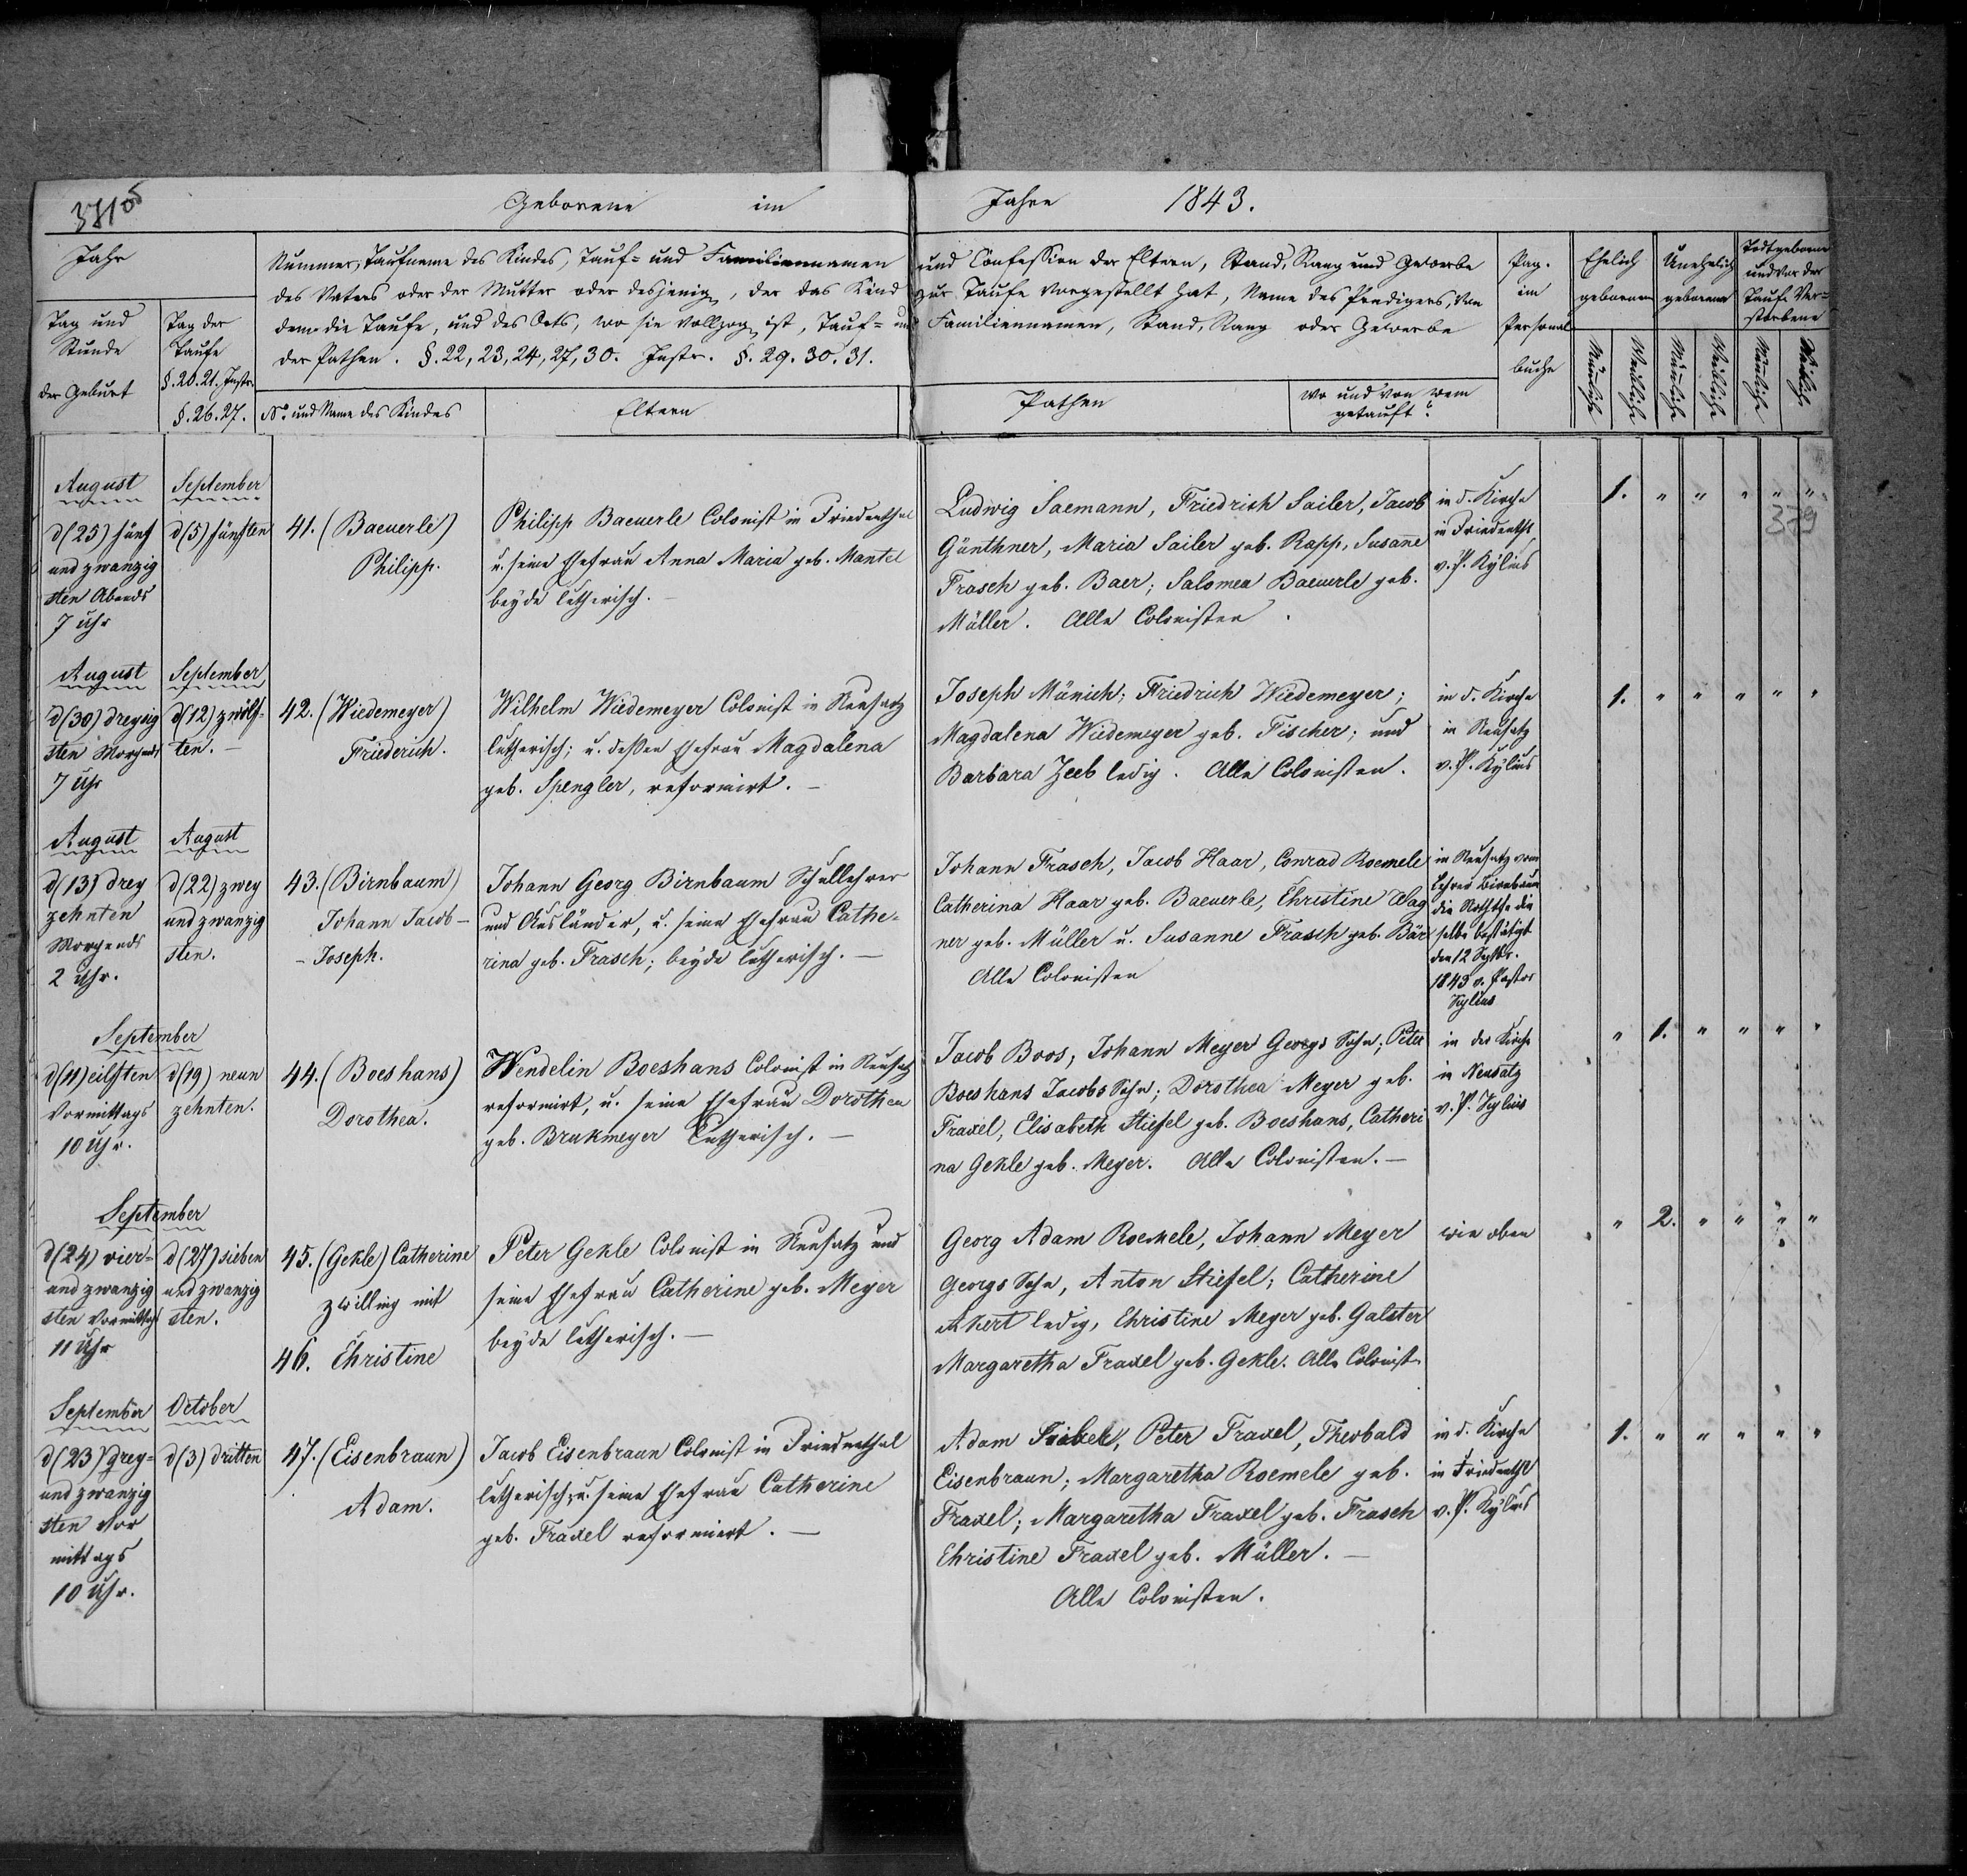 Geborene im Jahre 1843.
Jahr
Tag und Stunde der Geburt
Tag der Taufe §. 20. 21. Instr. §. 26. 27.
Nummer, Taufname des Kindes, Tauf- und Familiennamen und Confession der Eltern, Stand, Rang und Gewerbe
des Vaters oder der Mutter oder desjenig, der das Kind zur Taufe vorgestellt hat, Name des Predigers, von
dem die Taufe, und des Orts, wo sie vollzog ist, Tauf- und Familiennamen, Stand, Rang oder Gewerbe
der Pathen. §. 22, 23, 24, 27, 30. Instr. §. 29. 30. 31.
No. und Name des Kindes
Eltern
Pathen
wo und von wem getauft?
Pag. im Personal buche
Ehelich geborene
Unehelich geborene
Todtgeborne und vor der Taufe Verstorbene
Männliche
Weibliche
Männliche
Weibliche
Männliche
Weibliche
August
d (25) fünf
und zwanzig
sten Abends
7 Uhr
September
d (5) fünften
41. (Baeuerle)
Philipp.
Philipp Baeuerle Colonist in Friedenthal
u. seine Ehefrau Anna Maria geb. Mantel
beyde lutherisch. –
Ludwig Saemann, Friedrich Sailer, Jacob
Günthner, Maria Sailer geb. Rapp, Susanne
Frasch geb. Baer; Salomea Baeuerle geb.
Müller. Alle Colonisten.
in d. Kirche
in Friedenthl
v. P. Kylius
1. " " " " "
379
August
d (30) dreysig
sten Morgends
7 Uhr
September
d (12) zwölf-
ten. –
42. (Wiedemeyer)
Friederich.
Wilhelm Wiedemeyer Colonist in Neusatz
lutherisch; u. dessen Ehefrau Magdalena
geb. Spengler, reformirt. –
Joseph Münich; Friedrich Wiedemeyer;
Magdalena Wiedemeyer geb. Fischer; und
Barbara Zeeb ledig. Alle Colonisten.
in d. Kirche
in Neusatz
v. P. Kylius
1. " " " " "
August
d (13) drey
zehnten
Morgends
2 Uhr.
August
d (22) zwey
und zwanzig
sten.
43. (Birnbaum)
Johann Jacob –
– Joseph.
Johann Georg Birnbaum Schullehrer
und Ausländer, u. seine Ehefrau Cathe-
rina geb. Frasch; beyde lutherisch. –
Johann Frasch, Jacob Haar, Conrad Roemele
Catherina Haar geb. Baeuerle, Christine Wag
ner geb. Müller u. Susanne Frasch geb. Bär
Alle Colonisten
in Neusatz vom
Lehrer Birnbaum
die Nottfe die
selbe bestätigt
den 12 Septbr.
1843 v. Pastor
Kylius
September
d (11) eilften
Vormittags
10 Uhr.
d (19) neun
zehnten.
44. (Boeshans)
Dorothea.
Wendelin Boeshans Colonist in Neusatz
reformirt, u. seine Ehefrau Dorothea
geb. Brukmeyer lutherisch. –
Jacob Boos, Johann Meyer Georgs Sohn; Peter
Boeshans Jacobs Sohn; Dorothea Meyer geb.
Fraxel, Elisabeth Stiefel geb. Boeshans, Catheri
na Gekle geb. Meyer. Alle Colonisten. –
in der Kirche
in Neusatz
v. P. Kylius
" 1. " " " "
September
d (24) vier-
und zwanzig
sten Vormittags
11 Uhr
d (27) sieben
und zwanzig
sten.
45. (Gekle) Catherine
Zwilling mit
46. Christine
Peter Gekle Colonist in Neusatz und
seine Ehefrau Catherine geb. Meyer
beyde lutherisch. –
Georg Adam Roemele, Johann Meyer
Georgs Sohn, Anton Stiefel; Catherine
Akert ledig, Christine Meyer geb. Galster
Margaretha Fraxel geb. Gekle. Alle Colonist
wie oben
" 2. " " " "
September
d (23) drey-
und zwanzig
sten Vor
mittags
10 Uhr.
October
d (3) dritten
47. (Eisenbraun)
Adam.
Jacob Eisenbraun Colonist in Friedenthal
lutherisch; u. seine Ehefrau Catherine
geb. Fraxel reformiert. –
Adam Peter Fraxel, Theobald
Eisenbraun; Margaretha Roemele geb.
Fraxel; Margaretha Fraxel geb. Frasch
Christine Fraxel geb. Müller. –
Alle Colonisten.
in d. Kirche
in Friedenthl
v. P. Kylius
1. " " " " "